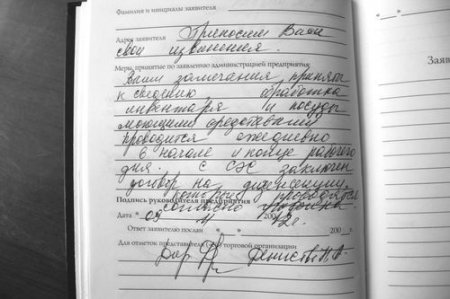 Фамилия и инициалы заявителя
Приносим Вам
Адрес заявителя
свои извинения.
Меры, принятые по заявлению администрацией предприятия:
Ваши замечания приняты
к сведению, обработка
инвентаря и посуды
моющими средствами
проводится ежедневно
в начале и конце рабочего
дня. с СЭС заключен
договор на дезинсекцию,
которая проводится
Подпись руководителя предприятия
согласно графика
Дата " 09 " 11 200 12г.
Ответ заявителю послан " " 200 г.
Для отметок представителя торговой организации
Дир.
Заяв
" "